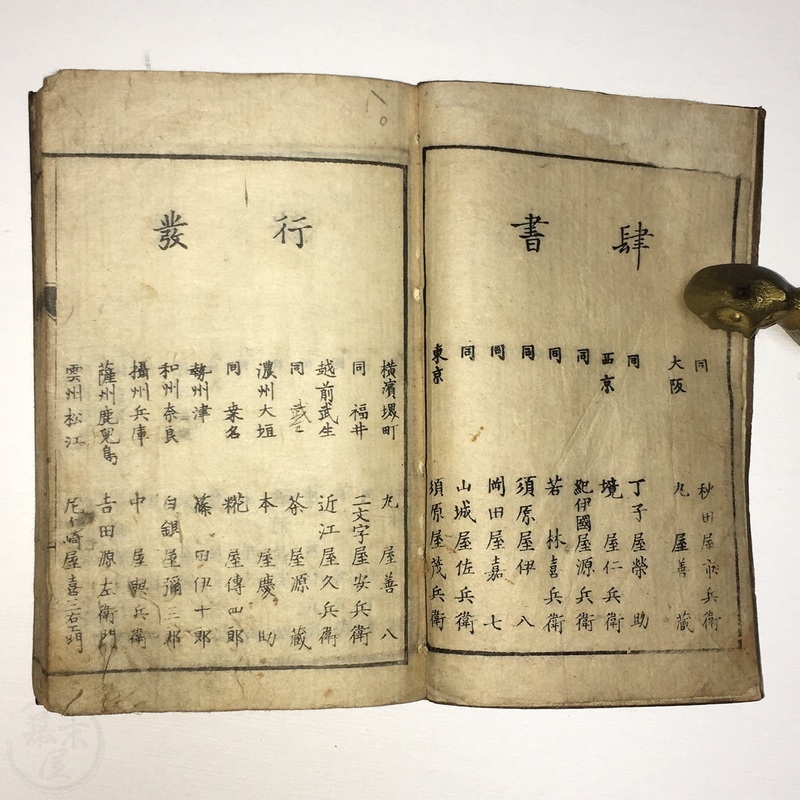 發行
雲州松江 尼ヶ崎屋喜三右エ門
薩州鹿兒島 吉田源左衛門
攝州兵庫 中屋興兵衛
和州奈良 白銀屋彌三郎
勢州津 篠田伊十郎
同 桑名 糀屋傳四郎
濃州大垣 本屋慶助
同 茶屋源藏
越前武生 近江屋久兵衛
同 福井 二文字屋安兵衛
横濱堺町 丸屋善八
書肆
東京 須原屋茂兵衛
同 山城屋佐兵衛
同 岡田屋嘉七
同 須原屋伊八
同 若林喜兵衛
同 紀伊國屋源兵衛
西京 境屋仁兵衛
同 丁子屋榮助
大阪 丸屋善藏
同 秋田屋市兵衛
幕末屋